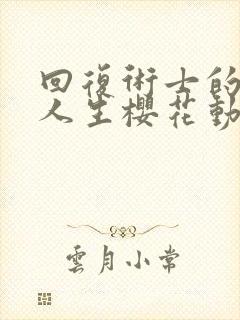 回復術士的
人生櫻花動
雲月小常